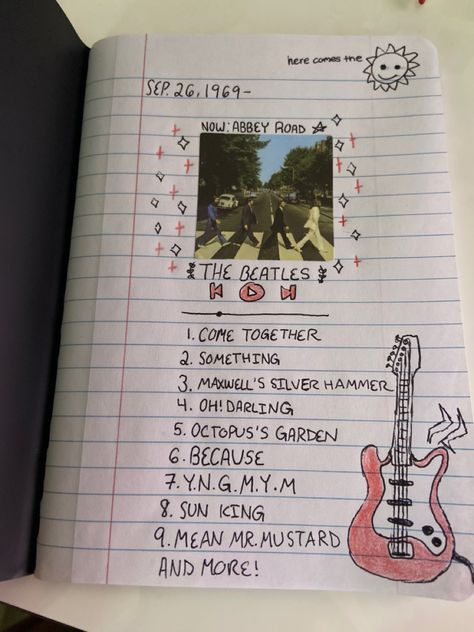 here comes the
SEP. 26, 1969-
NOW: ABBEY ROAD
THE BEATLES
1. COME TOGETHER
2. SOMETHING
3. MAXWELL'S SILVER HAMMER
4. OH! DARLING
5. OCTOPUS'S GARDEN
6. BECAUSE
7. Y.N.G.M.Y.M
8. SUN KING
9. MEAN MR. MUSTARD
AND MORE!